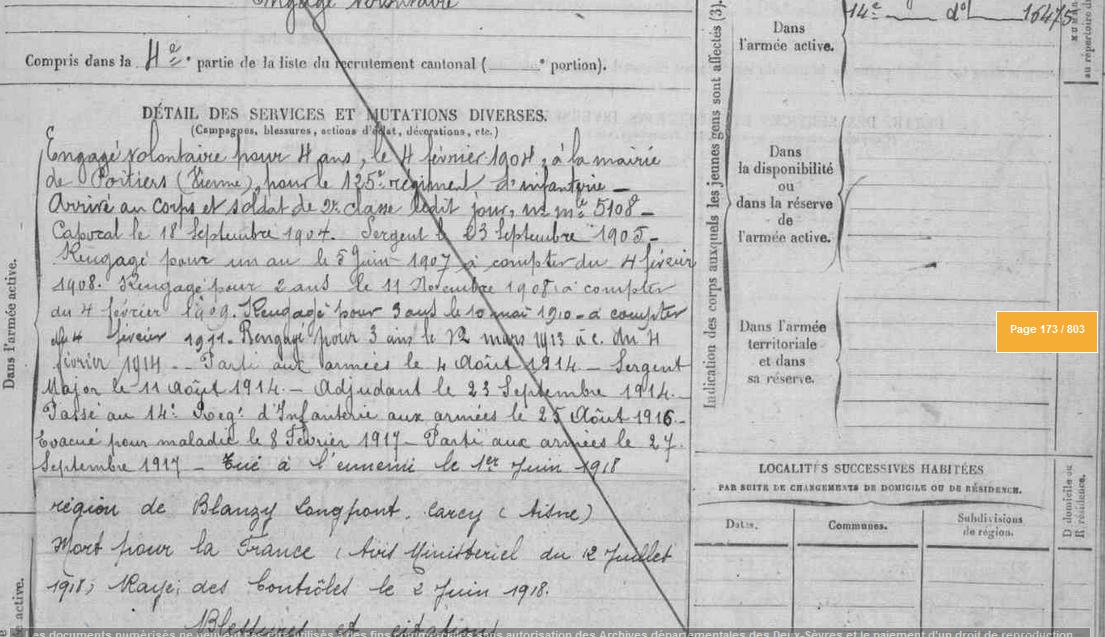 Engagé volontaire
Compris dans la 4e partie de la liste du recrutement cantonal (     e portion).
DÉTAIL DES SERVICES ET MUTATIONS DIVERSES.
(Campagnes, blessures, actions d'éclat, décorations, etc.)
Dans l'armée active.
Engagé volontaire pour 4 ans, le 4 février 1904, à la mairie
de Poitiers (Vienne), pour le 125e régiment d'infanterie —
Arrivé au corps et soldat de 2e classe ledit jour, n° mle 5108 —
Caporal le 18 Septembre 1904. Sergent le 23 Septembre 1905 —
Rengagé pour un an le 5 Juin 1907 à compter du 4 février
1908. Rengagé pour 2 ans le 11 Novembre 1908 à compter
du 4 février 1909. Rengagé pour 3 ans le 10 mai 1910 - à compter
du 4 février 1911. Rengagé pour 3 ans le 12 mars 1913 à c. du 4
février 1914 — Parti aux armées le 4 Août 1914 — Sergent
Major le 11 Août 1914 — Adjudant le 23 Septembre 1914 —
Passé au 14e Rég. d'Infanterie aux armées le 25 Août 1916 —
Evacué pour maladie le 8 Février 1917 — Parti aux armées le 27
Septembre 1917 — Tué à l'ennemi le 1er Juin 1918
région de Blangy Longpont. Carcy (Aisne)
Mort pour la France (Avis Ministériel du 12 Juillet
1918; Rayé des Contrôles le 2 Juin 1918.
Blessures et citations
active.
Indication des corps auxquels les jeunes gens sont affectés (3).
Dans
l'armée active.
14e d° 16475
NUMÉRO
au répertoire
Dans
la disponibilité
ou
dans la réserve
de
l'armée active.
Dans l'armée
territoriale
et dans
sa réserve.
Page 173 / 803
LOCALITÉS SUCCESSIVES HABITÉES
PAR SUITE DE CHANGEMENTS DE DOMICILE OU DE RÉSIDENCE.
Dates.
Communes.
Subdivisions
de région.
D domicile ou
R résidence.
Les documents numérisés ne peuvent pas être utilisés à des fins commerciales sans autorisation des Archives départementales des Deux-Sèvres et le paiement d'un droit de reproduction